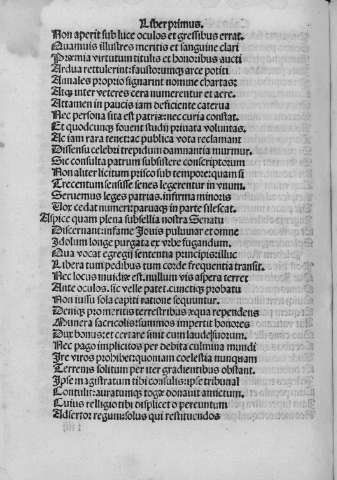 Liber primus.
Non aperit sub luce oculos et gressibus errat.
Quamuis illustres meritis et sanguine clari
Præmia virtutum titulis et honoribus aucti
Ardua rettulerint: fastorumqꝫ arce potiti
Annales proprio signarint nomine chartas:
Atqꝫ inter veteres cera numerentur et aere.
Attamen in paucis iam deficiente caterua
Nec persona sita est patriæ: nec curia constat.
Et quodcunqꝫ fouent studij priuata voluntas.
Ac iam rara tenet: ac publica vota reclamant
Dissensu celebri trepidum damnantia murmur.
Sic consulta patrum subsistere conscriptorum
Non aliter licitum prisco sub tempore: quam si
Trecentum sensisse senes legerentur in vnum.
Seruemus leges patrias. infirma minoris
Vox cedat numeri: paruaqꝫ in parte silescat.
Aspice quam plena subsellia nostra Senatu
Discernant: infame Iouis puluinar et omne
Idolum longe purgata ex vrbe fugandum.
Qua vocat egregij sententia principis: illuc
Libera tum pedibus tum corde frequentia transit.
Nec locus inuidiæ est. nullum vis aspera terret
Ante oculos. sic velle patet. cunctiqꝫ probatu
Non iussu sola capiti ratione sequuntur.
Deniqꝫ pro meritis terrestribus æqua rependens
Munera sacricolis: summos impertit honores
Dux bonus: et certare sinit cum laude suorum.
Nec pago implicitos per debita culmina mundi
Ire viros prohibet: quoniam coelestia nunquam
Terrenis solitum per iter gradientibus obstant.
Ipse magistratum tibi consulis: ipse tribunal
Contulit: auratumqꝫ togæ donauit amictum.
Cuius relligio tibi displicet o pereuntum
Adsertor regum: solus qui restituendos